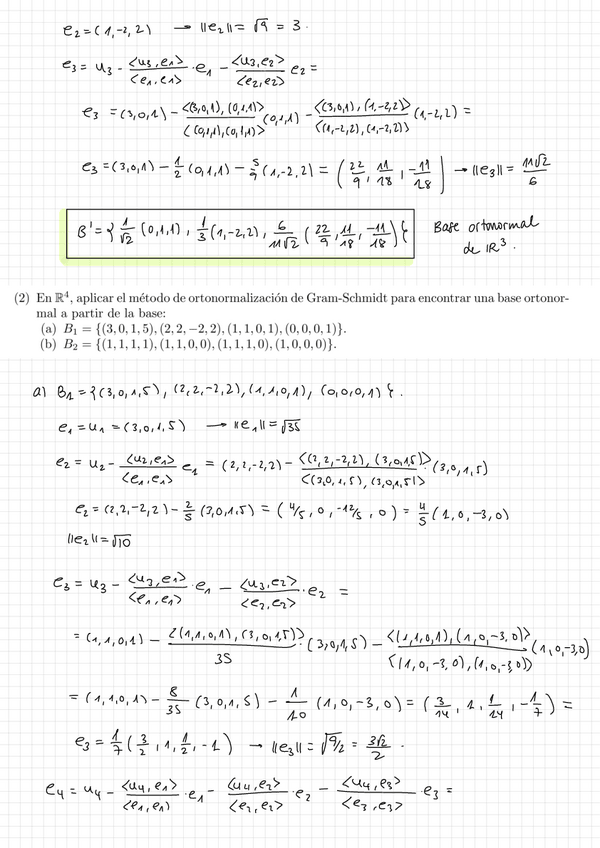 e₂=(1,-2,2) → ||e₂||= √9 = 3.
e₃ = u₃ - <u₃,e₁>/<e₁,e₁> · e₁ - <u₃,e₂>/<e₂,e₂> e₂ =
e₃ = (3,0,1) - <(3,0,1),(0,1,1)>/<(0,1,1),(0,1,1)> (0,1,1) - <(3,0,1),(1,-2,2)>/<(1,-2,2),(1,-2,2)> (1,-2,2) =
e₃ = (3,0,1) - 1/2 (0,1,1) - 5/9 (1,-2,2) = (22/9, 11/18, -11/18) → ||e₃|| = 11√2/6
B' = { 1/√2 (0,1,1), 1/3 (1,-2,2), 6/11√2 (22/9, 11/18, -11/18) } Base ortonormal
de ℝ³.
(2) En ℝ⁴, aplicar el método de ortonormalización de Gram-Schmidt para encontrar una base ortonor-
mal a partir de la base:
(a) B₁ = {(3, 0, 1, 5), (2, 2, −2, 2), (1, 1, 0, 1), (0, 0, 0, 1)}.
(b) B₂ = {(1, 1, 1, 1), (1, 1, 0, 0), (1, 1, 1, 0), (1, 0, 0, 0)}.
a) B₁ = {(3,0,1,5), (2,2,-2,2), (1,1,0,1), (0,0,0,1)}.
e₁ = u₁ = (3,0,1,5) → ||e₁|| = √35
e₂ = u₂ - <u₂,e₁>/<e₁,e₁> e₁ = (2,2,-2,2) - <(2,2,-2,2), (3,0,1,5)>/<(3,0,1,5), (3,0,1,5)> (3,0,1,5)
e₂ = (2,2,-2,2) - 2/5 (3,0,1,5) = (4/5, 0, -12/5, 0) = 4/5 (1,0,-3,0)
||e₂|| = √10
e₃ = u₃ - <u₃,e₁>/<e₁,e₁> · e₁ - <u₃,e₂>/<e₂,e₂> · e₂ =
= (1,1,0,1) - <(1,1,0,1),(3,0,1,5)>/35 · (3,0,1,5) - <(1,1,0,1),(1,0,-3,0)>/<(1,0,-3,0),(1,0,-3,0)> (1,0,-3,0)
= (1,1,0,1) - 8/35 (3,0,1,5) - 1/10 (1,0,-3,0) = (3/14, 1, 1/14, -1/7) =
e₃ = 1/7 (3/2, 1, 1/2, -1) → ||e₃|| = √9/2 = 3√2/2.
e₄ = u₄ - <u₄,e₁>/<e₁,e₁> · e₁ - <u₄,e₂>/<e₂,e₂> · e₂ - <u₄,e₃>/<e₃,e₃> · e₃ =